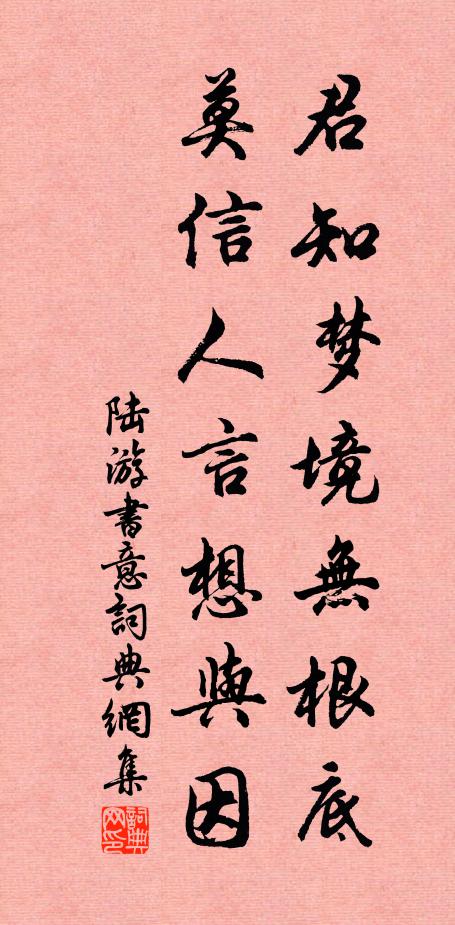 君知梦境無根底
莫信人言想與因
陆游書意詞典網集
詞典网印